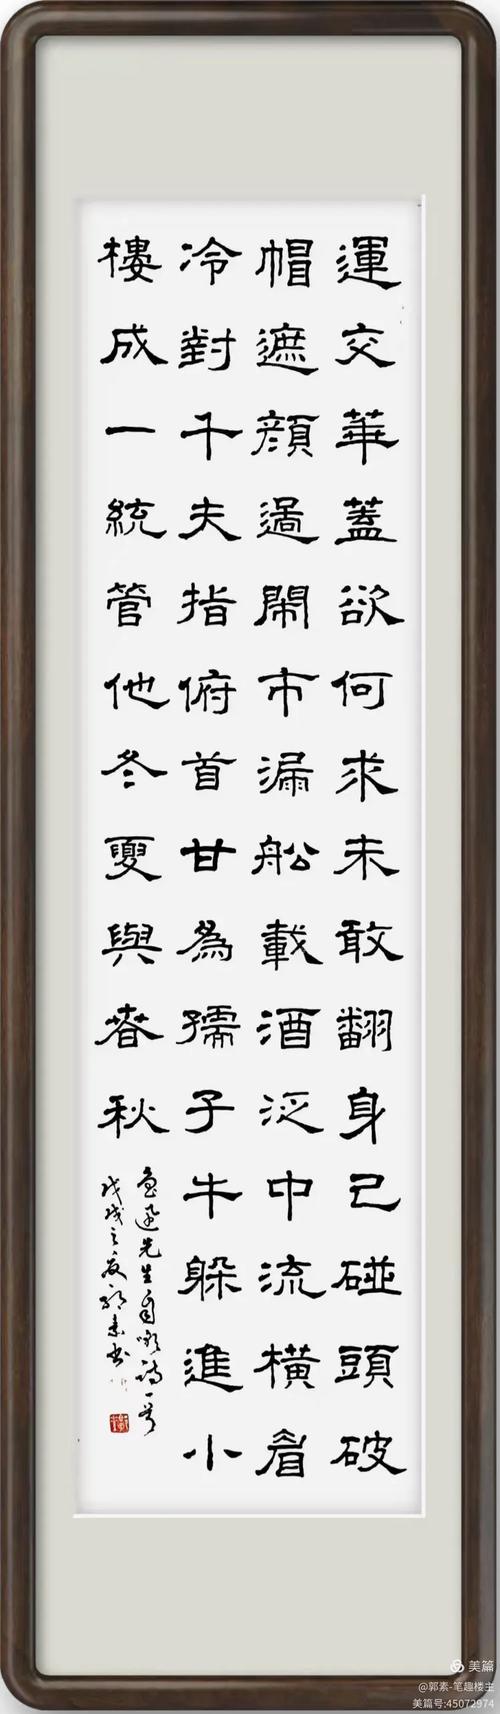 運交華蓋欲何求未敢翻身已碰頭破
帽遮顏過鬧市漏舩載酒泛中流橫眉
冷對千夫指俯首甘為孺子牛躲進小
樓成一統管他冬夏與春秋
魯迅先生自嘲詩一首
戊戌之夏郭素書
美篇
@郭素-笔趣楼主
美篇号:45072974